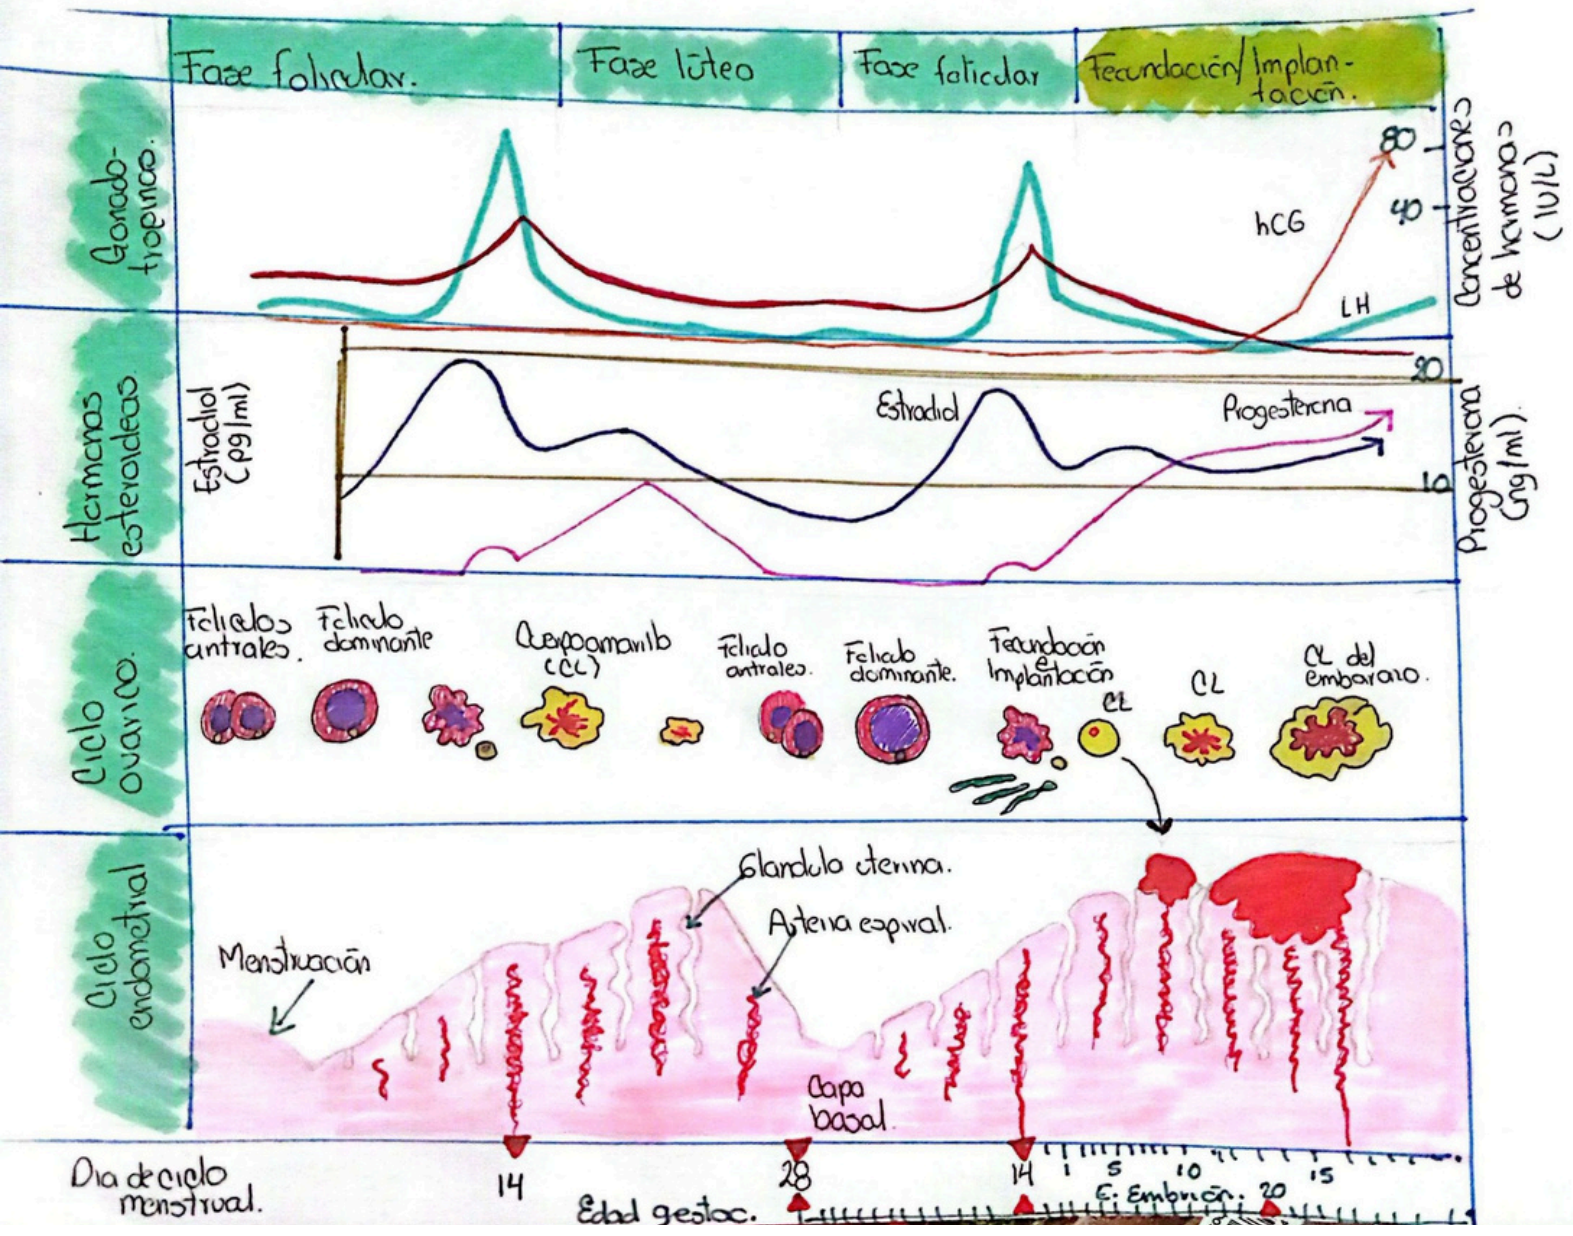 Fase folicular.
Fase lúteo
Fase folicular
Fecundación/Implan-
tación.
Gonado-
tropinas.
80
40
hCG
LH
Concentraciones
de hormonas
(IU/L)
Hormonas
esteroideas
Estradiol
(pg/ml)
Estradiol
Progesterona
20
10
Progesterona
(ng/ml).
Ciclo
ovarico.
Folículos
antrales.
Folículo
dominante
Cuerpoamarillo
(CL)
Folículo
antrales.
Folículo
dominante.
Fecundación
e
Implantación
CL
CL
CL del
embarazo.
Ciclo
endometrial
Menstruación
Glandula uterina.
Arteria espiral.
Capa
basal.
Dia de ciclo
menstrual.
14
28
14
1 5 10 15
E. Embrión. 20
Edad gestac.